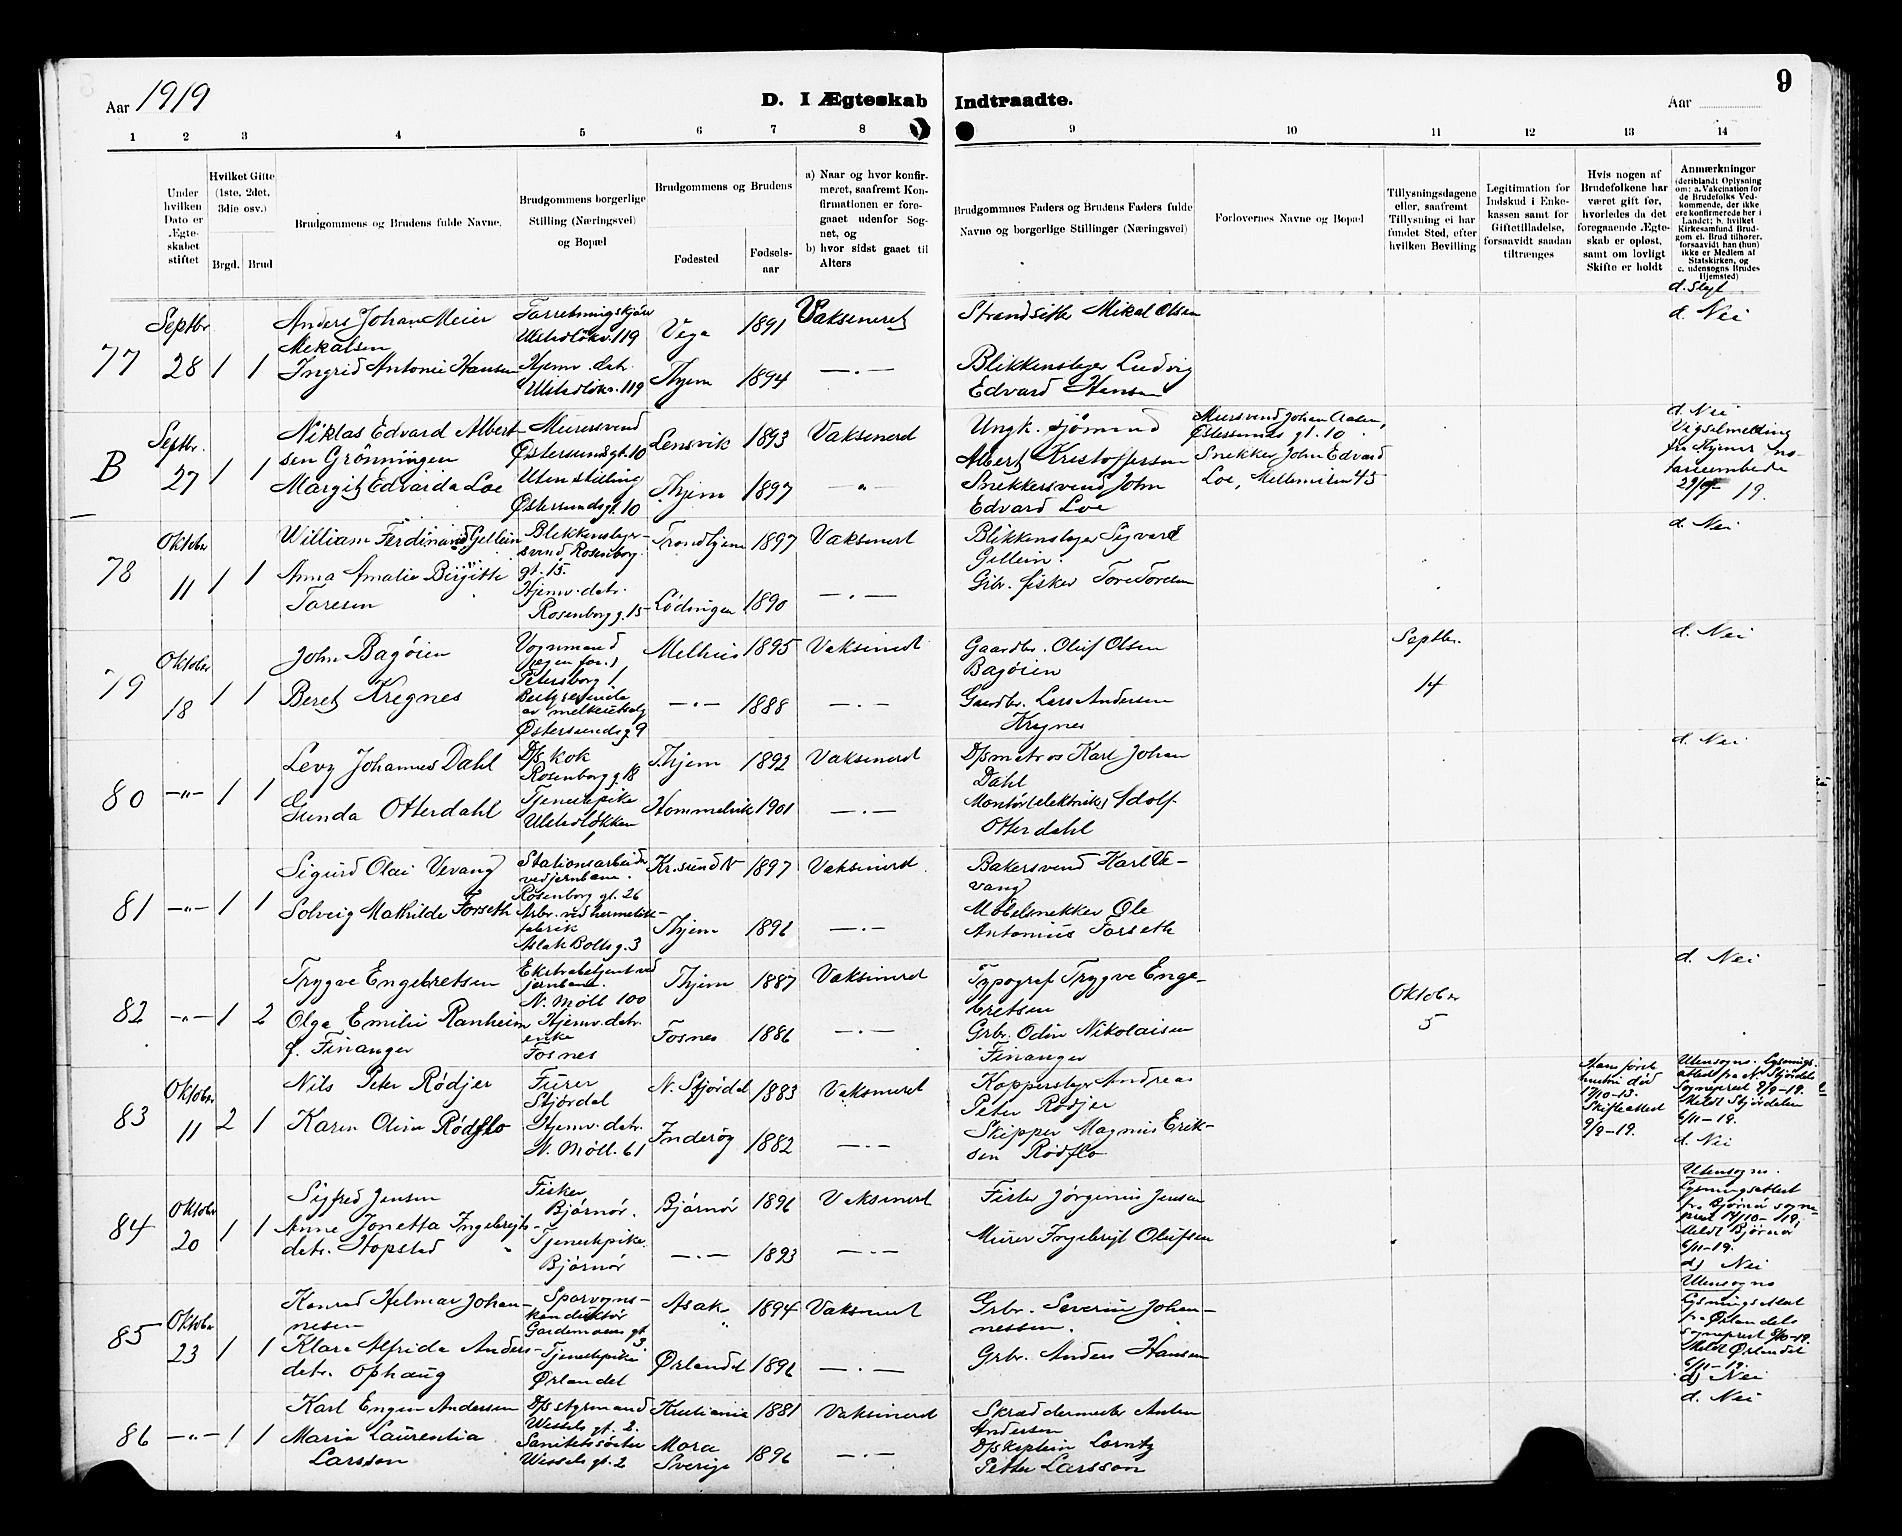 Aar 1919
D. I Ægteskab Indtraadte.
Aar
9
1 2 3 4 5 6 7 8 9 10 11 12 13 14
Under hvilken Dato er Ægteskabet stiftet
Hvilket Gifte (1ste, 2det, 3die osv.)
Brgd. Brud
Brudgommens og Brudens fulde Navne.
Brudgommens borgerlige Stilling (Næringsvei) og Bopæl
Brudgommens og Brudens
Fødested
Fødselsaar
a) Naar og hvor konfirmeret, saafremt Konfirmationen er foregaaet udenfor Sognet, og
b) hvor sidst gaaet til Alters
Brudgommnes Faders og Brudens Faders fulde Navne og borgerlige Stillinger (Næringsvei)
Forlovernes Navne og Bopæl
Tillysningsdagene eller, saafremt Tillysning ei har fundet Sted, efter hvilken Bevilling
Legitimation for Indskud i Enkekassen samt for Giftetilladelse, forsaavidt saadan tiltrænges
Hvis nogen af Brudefolkene har været gift før, hvorledes da det foregaaende Ægteskab er opløst, samt om lovligt Skifte er holdt
Anmærkninger
(deriblandt Oplysning om: a. Vakcination for de Brudefolks Vedkommende, der ikke ere konfirmerede her i Landet; b. hvilket Kirkesamfund Brudgom ei. Brud tilhører, forsaavidt han (hun) ikke er Medlem af Statskirken, og c. udensogns Brudes Hjemsted)
d. Slegt
77
Septbr
28 1 1
Anders Johan Meier
Mekalsen
Ingrid Antonie Hansen
Ulstadløkv. 119
Hjemv. datr.
Ulstadløkv. 119
Vega 1891 Vaksineret
Thjem 1894 — . —
Strandsitter Mikal Olsen
Blikkenslager Ludvig
Edvard Hansen
d. Nei
B
Septbr.
27 1 1
Niklas Edvard Albert-
sen Grönningen
Margit Edvarda Loe
Murersvend
Østersundsgt. 10
Uten stilling
Østersundsgt. 10
Lensvik 1893 Vaksinerd
Thjem 1897 "
Ungk. sjömand
Albert Kristoffersen
Snekkersvend John
Edvard Loe
Mursvend Johan Aalen,
Østersunds gt. 10
Snekker John Edvard
Loe, Mellemilen 45
d. Nei
Vigselmelding
fra Thjems no-
tariembede
29/9 19.
78
Oktober
11 1 1
William Ferdinand Gellein
Anna Amalie Birgitte
Toresen
Blikkenslager-
svend Rosenborg
gt. 15.
Hjemv. datr.
Rosenborg g. 15
Trondhjem 1897 Vaksinert
Lödingen 1890 — . —
Blikkenslager Sigvard
Gellein.
Grbr. fisker Tore Toresen
d. Nei
79
Oktober
18 1 1
John Bagöien
Beret Kregnes
Vognmand
(egen for.)
Petersborg 1
Bestyrerinde
av melkeutsalg
Østersundsg. 9
Melhus 1895 Vaksinert
— . — 1888 — . —
Gaardbr. Oluf Olsen
Bagöien
Gaardbr. Lars Andersen
Kregnes
Septbr.
14
d. Nei
80
— " — 1 1
Levy Johannes Dahl
Gunda Otterdahl
D/s kok
Rosenborg g. 18
Tjenestepike
Ulstadløkken
1
Thjem 1892 Vaksinerd
Hommelvik 1901 — . —
D/s matros Karl Johan
Dahl
Montör (elektrik.) Adolf
Otterdahl
d. Nei
81
— " — 1 1
Sigurd Olai Vevang
Solveig Mathilde Forseth
Stationsarbeider
ved jernbane.
Rosenborg gt. 26
Arb. ved hermetik-
fabrik
Aslak Bolts g. 3
Kr.sund N 1897 Vaksinerd
Thjem 1896 — . —
Bakersvend Karl Ve-
vang
Møbelsnekker Ole
Antonius Forseth
82
— " — 1 2
Trygve Engebretsen
Olga Emilie Ranheim
f. Finanger
Ekstrabetjent ved
jernbane.
N. Möll 100
Hjemv. datr.
enke
Fosnes
Thjem 1887 Vaksinerd
Fosnes 1886 — . —
Typograf Trygve Enge-
bretsen
Grbr. Odin Nikolaisen
Finanger
Oktober
5
d. Nei
83
Oktober
11 2 1
Nils Peter Rödjer
Karen Olina Rödflo
Furer
Stjördal
Hjemv. datr.
N. Möll. 61
N. Stjördal 1883 Vaksineret
Inderöy 1882 — . —
Kopperslager Andreas
Peter Rödjer
Skipper Magnus Erik-
sen Rödflo
Hans förste
hustru död
17/10-13.
Skifteattest
9/9-19.
Utensogns. Lysnings-
attest fra N. Stjördals
Sogneprest 9/9-19.
Meldt Stjördalen
6/11-19.
d. Nei
84
Oktober
20 1 1
Sigfred Jensen
Anne Jonetta Ingebrigts-
datr. Hopstad
Fisker
Björnör.
Tjenestepike.
Björnör
Björnör 1896 Vaksinerd
— . — 1893 — . —
Fisker Jörginus Jensen
Murer Ingebrigt Olufsen
Utensogns.
Lysningsattest
fra Björnör sogne-
prest 14/10-19.
Meldt Björnör
6/11-19.
d) Nei
85
Oktober
23 1 1
Konrad Helmar Johan-
nesen
Klara Alfrida Anders-
datr. Ophaug
Sporvogns-
konduktör
Gardemoens gt.
3
Tjenestepike
Ørlandet
Asak 1894 Vaksinert
Ørlandet 1896 — . —
Grbr. Severin Johan-
nessen.
Grbr. Anders Hansen
Utensogns
Lysningsattest
fra Ørlandets
sogneprest
Meldt Ørlandet
6/11-19.
d) Nei
86
— " — 1 1
Karl Engen Andersen
Maria Laurentia
Larsson
D/s styrmand
Wessels gt. 2.
Sanitetssöster
Wessels gt. 2
Kristiania 1881 Vaksinerd
Mora
Sverige 1896 — . —
Skræddermester Anton
Andersen
D/s kaptein Lorntz
Petter Larsson
d. Nei